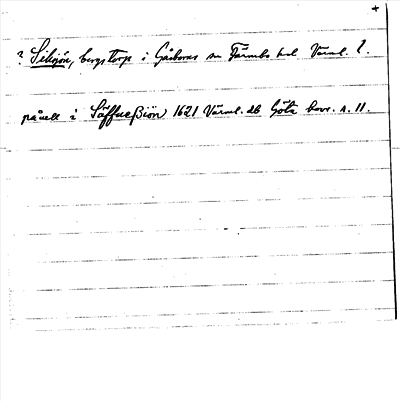 +
? Siksjön, bergstorp i Gåsborns sn Färnebo hd Värml. l.
påuell i Säffueßiön 1621 Värml. db Göta hovr. n. 11.